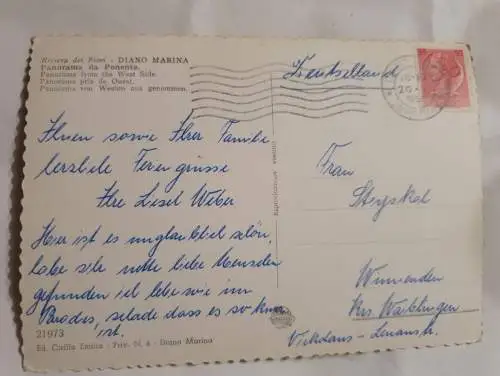 Riviera dei Fiori - DIANO MARINA
Panorama da Ponente.
Panorama from the West Side.
Panorama pris de Ouest.
Panorama von Westen aus genommen.
Ihnen sowie Ihrer Familie
herzliche Feriengrüsse
Ihre Liesel Weber
Hier ist es unglaublich schön,
habe sehr nette liebe Menschen
gefunden ich lebe wie im
Paradies, schade dass es so kurz
ist.
21973
Ed. Cirilla Tomaso - Priv. N. 6 - Diano Marina
Riproduzione vietata
Deutschland
Frau
Stryskal
Winnenden
Krs. Waiblingen
Lenaustr.